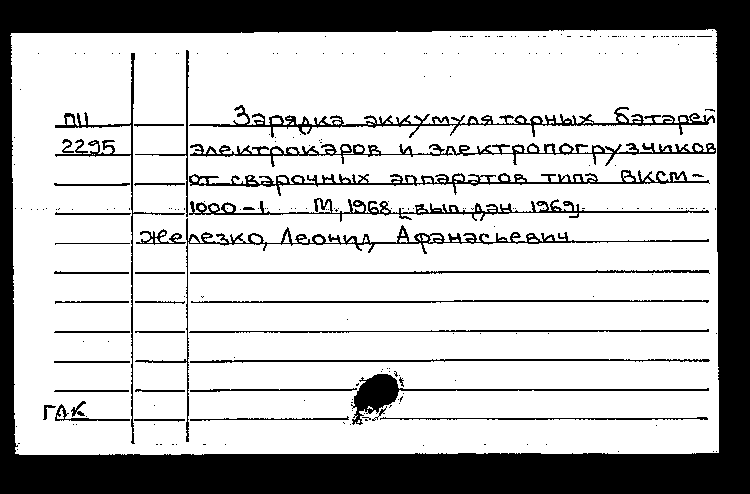 П11 Зарядка аккумуляторных батарей
2295 электрокаров и электропогрузчиков
от сварочных аппаратов типа ВКСМ-
1000-1. М, 1968 [вып. дан. 1969].
Железко, Леонид Афанасьевич
ГАК